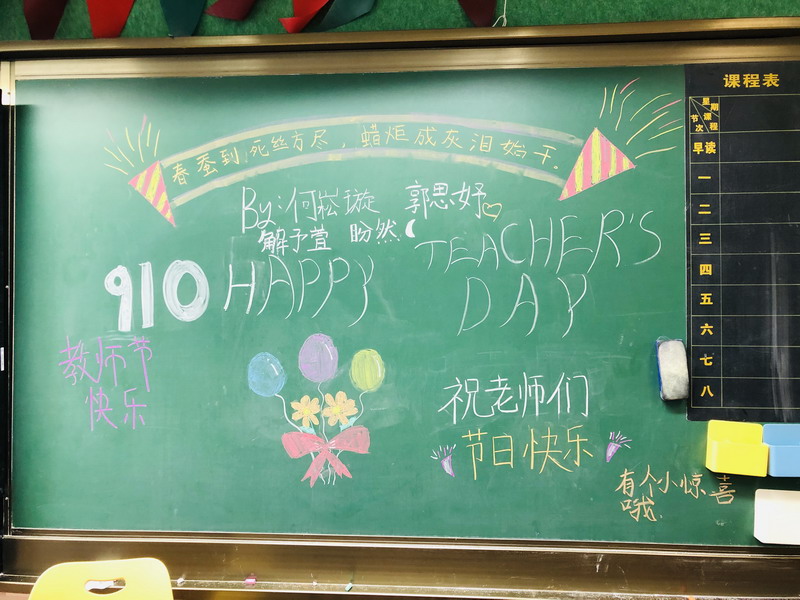 春蚕到死丝方尽，蜡炬成灰泪始干.
By:何崧璇 郭思妤
解予萱 盼然
910 HAPPY TEACHER'S DAY
教师节
快乐
祝老师们
节日快乐
有个小惊喜
哦.
课程表
星期
课程
节次
早读
一
二
三
四
五
六
七
八